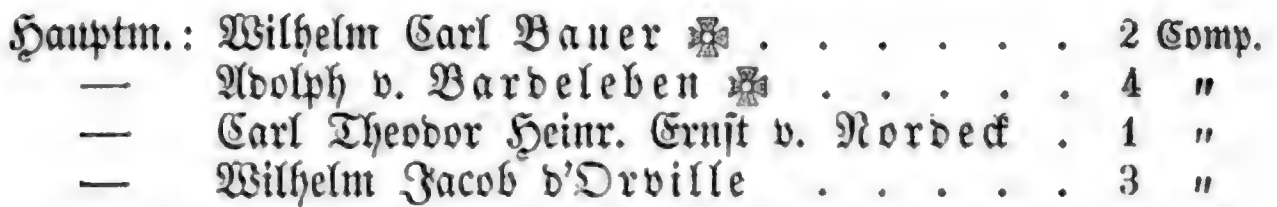 Hauptm.: Wilhelm Carl Bauer ✠ . . . . . . 2 Comp.
— Adolph v. Bardeleben ✠ . . . . . 4 "
— Carl Theodor Heinr. Ernst v. Nordeck . 1 "
— Wilhelm Jacob d'Orville . . . . . 3 "